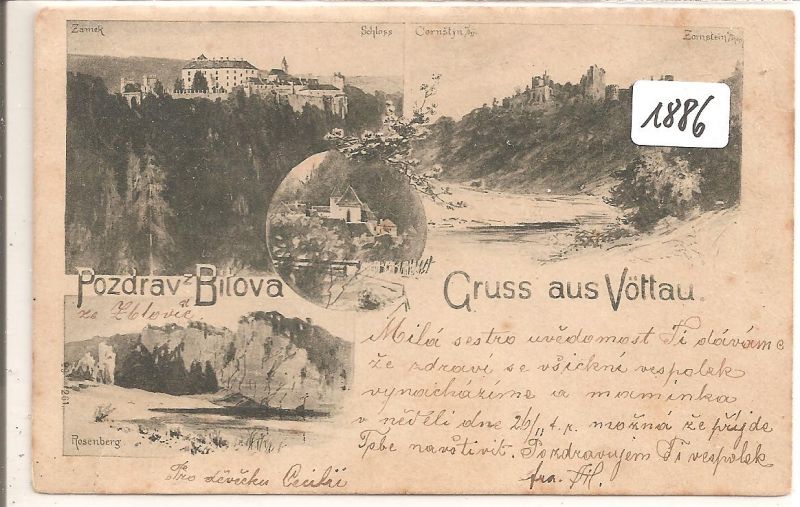 Zámek
Schloss
Cornštin
Zornstein
1886
Pozdrav z Bítova
Gruss aus Vöttau.
ze Zblovic
Milá sestro uvědomost Ti dáváme
že zdraví se všickni vespolek
vynacházíme a maminka
v neděli dne 26/11 t. r. možná že přijde
Tebe navštívit. Pozdravujem Ti vespolek
Rosenberg
Pro děvečku Cecilii